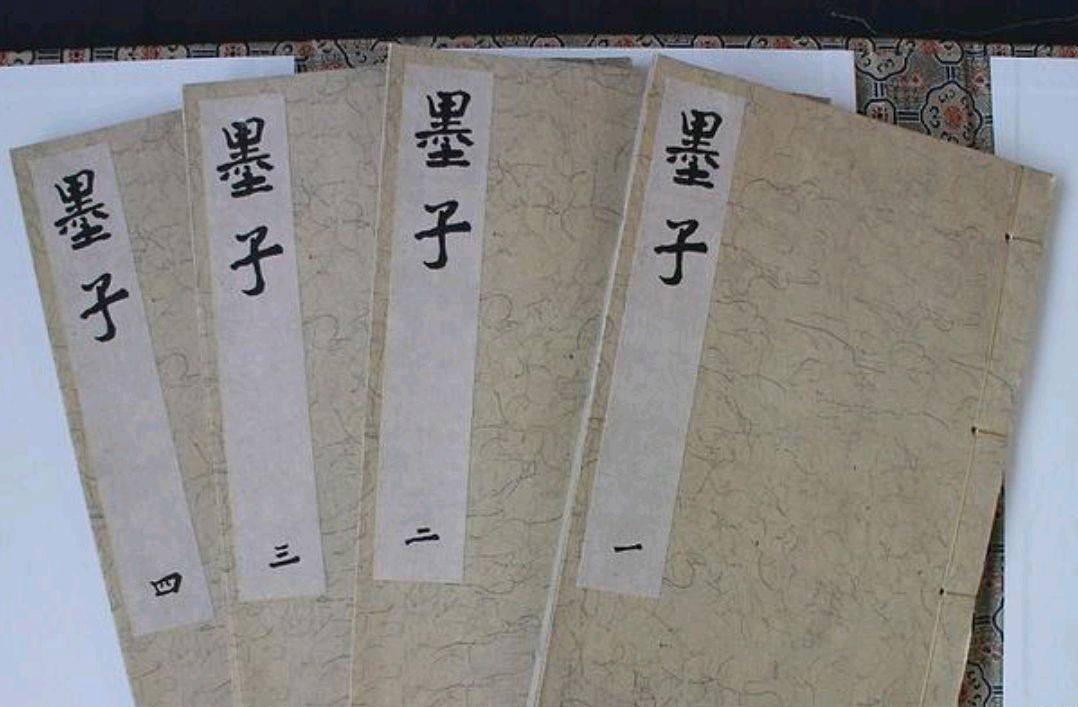 墨子 一
墨子 二
墨子 三
墨子 四